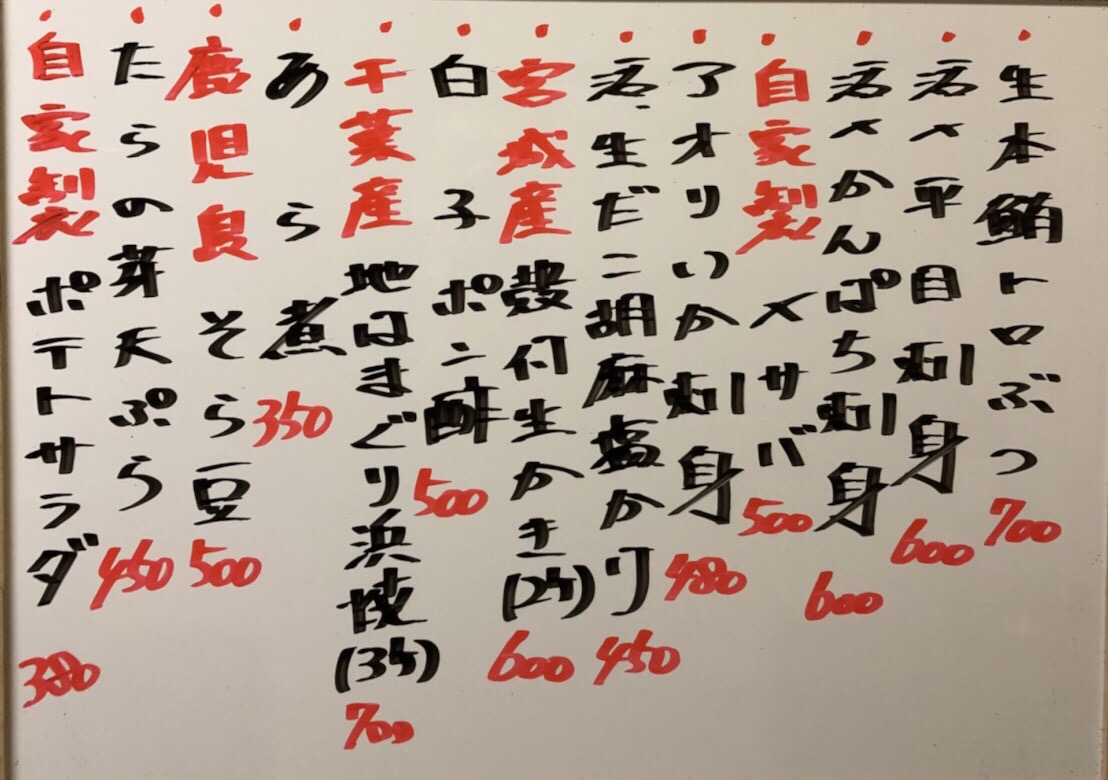 生本鮪トロぶつ 700
活〆平目刺身 600
活〆かんぱち刺身 600
自家製〆サバ 500
アオリいか刺身 480
活生だこ胡麻塩かり 450
宮城産殻付生かき(2ケ) 600
白子ポン酢 500
千葉産地はまぐり浜焼(3ケ) 700
あら煮 350
鹿児島そら豆 500
たらの芽天ぷら 450
自家製ポテトサラダ 380